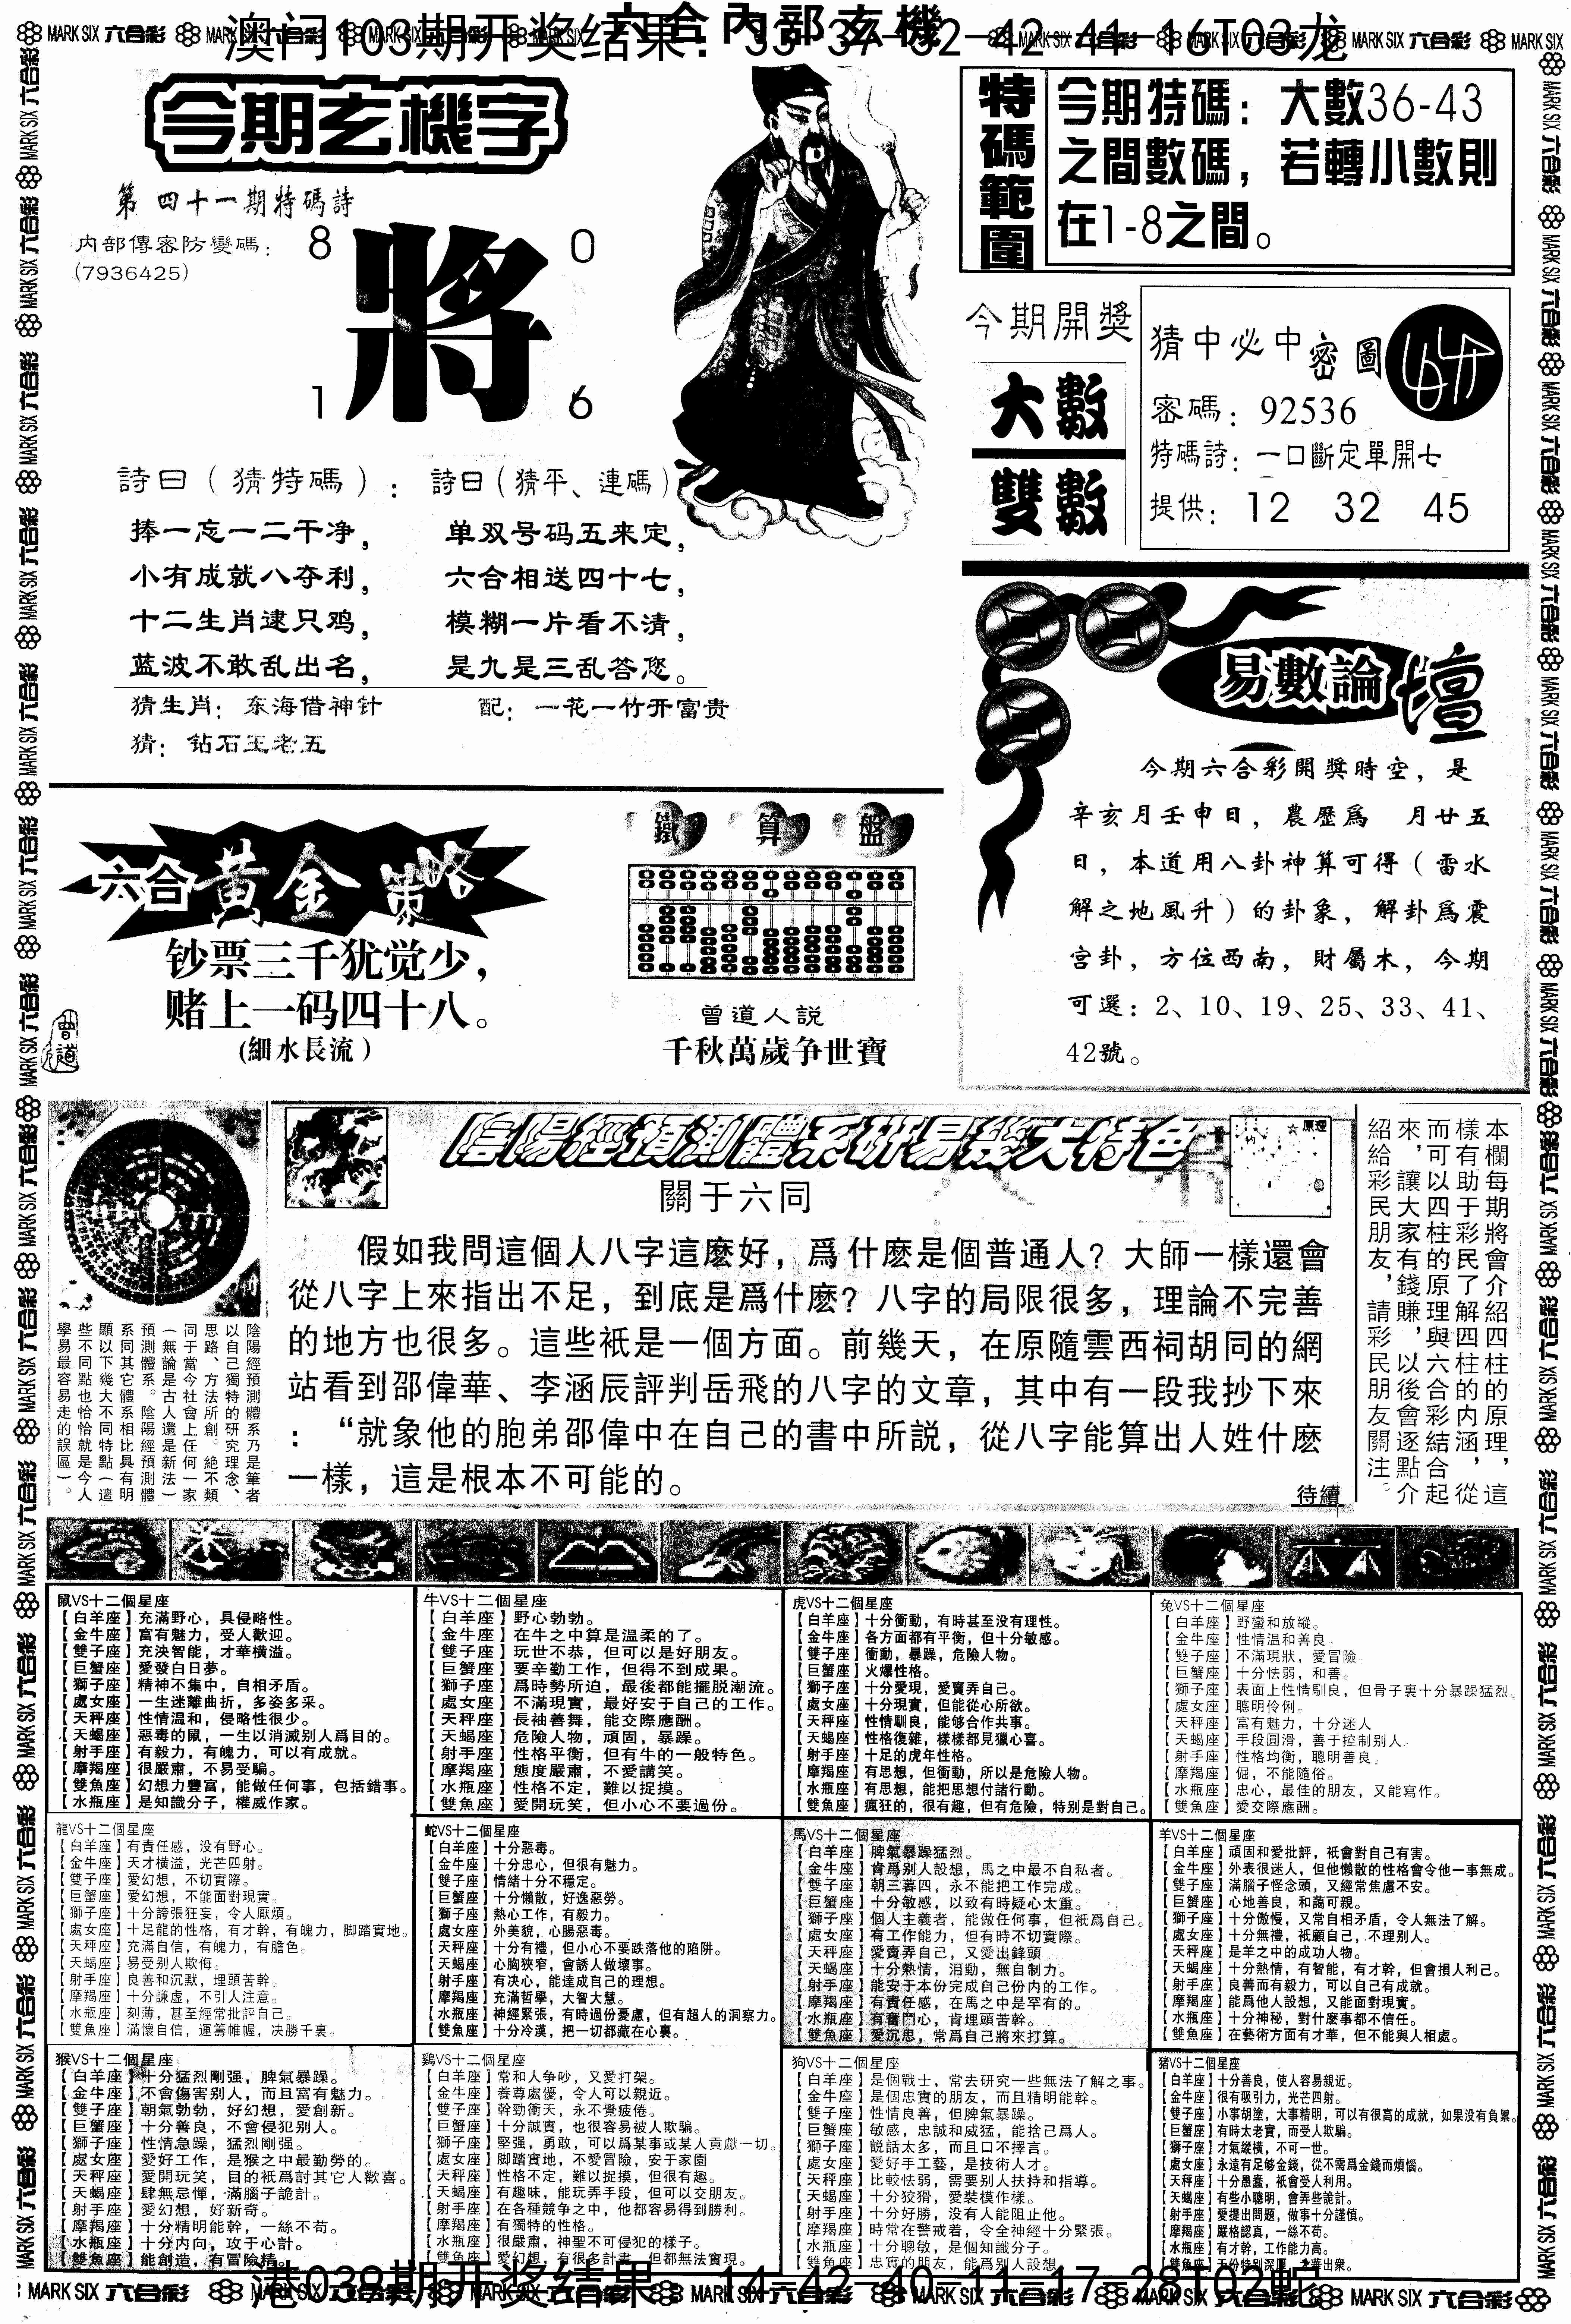 六合內部玄機
澳门103期开奖结果:33-37-32-42-41-16T03龙
今期玄機字
第四十一期特碼詩
内部傳密防變碼:
(7936425)
8 0
將
1 6
詩曰(猜特碼):
捧一忘一二干净,
小有成就八夺利,
十二生肖逮只鸡,
蓝波不敢乱出名,
詩曰(猜平、連碼)
单双号码五来定,
六合相送四十七,
模糊一片看不清,
是九是三乱答您。
猜生肖:东海借神针
配:一花一竹开富贵
猜:钻石王老五
特碼範圍
今期特碼:大數36-43
之間數碼,若轉小數則
在1-8之間。
今期開獎
大數
雙數
猜中必中密圖
密碼:92536
特碼詩:一口斷定單開七
提供: 12 32 45
易數論壇
今期六合彩開獎時空,是
辛亥月壬申日,農歷爲 月廿五
日,本道用八卦神算可得(雷水
解之地風升)的卦象,解卦爲震
宫卦,方位西南,財屬木,今期
可選:2、10、19、25、33、41、
42號。
六合黄金策略
钞票三千犹觉少,
赌上一码四十八。
(細水長流)
曾道
鐵算盤
曾道人説
千秋萬歲争世寶
陰陽經預測體系研易幾大特色
關于六同
原理
假如我問這個人八字這麽好,爲什麽是個普通人?大師一樣還會
從八字上來指出不足,到底是爲什麽?八字的局限很多,理論不完善
的地方也很多。這些衹是一個方面。前幾天,在原隨雲西祠胡同的網
站看到邵偉華、李涵辰評判岳飛的八字的文章,其中有一段我抄下來
:“就象他的胞弟邵偉中在自己的書中所説,從八字能算出人姓什麽
一樣,這是根本不可能的。
待續
本欄每期將會介紹四柱的原理,這
樣有助于彩民了解四柱的内涵,從
而可以四柱的原理與六合彩結合起
來,讓大家有錢賺,以後會逐點介
紹給彩民朋友,請彩民朋友關注。
陰陽經預測體系乃是筆者
以自己獨特的研究理念、
思路、方法所創。絶不類
同于當今社會上任何一家
(無論是古人還是新法)
預測體系。陰陽經預測體
系同其它體系相比具有明
顯以下幾大不同特點(這
些不同點也恰恰就是今人
學易最容易走的誤區)。
鼠VS十二個星座
【白羊座】充滿野心,具侵略性。
【金牛座】富有魅力,受人歡迎。
【雙子座】充決智能,才華横溢。
【巨蟹座】愛發白日夢。
【獅子座】精神不集中,自相矛盾。
【處女座】一生迷離曲折,多姿多采。
【天秤座】性情温和,侵略性很少。
【天蝎座】惡毒的鼠,一生以消滅别人爲目的。
【射手座】有毅力,有魄力,可以有成就。
【摩羯座】很嚴肅,不易受騙。
【雙魚座】幻想力豐富,能做任何事,包括錯事。
【水瓶座】是知識分子,權威作家。
牛VS十二個星座
【白羊座】野心勃勃。
【金牛座】在牛之中算是温柔的了。
【雙子座】玩世不恭,但可以是好朋友。
【巨蟹座】要辛勤工作,但得不到成果。
【獅子座】爲時勢所迫,最後都能擺脱潮流。
【處女座】不滿現實,最好安于自己的工作。
【天秤座】長袖善舞,能交際應酬。
【天蝎座】危險人物,頑固,暴躁。
【射手座】性格平衡,但有牛的一般特色。
【摩羯座】態度嚴肅,不愛講笑。
【水瓶座】性格不定,難以捉摸。
【雙魚座】愛開玩笑,但小心不要過份。
虎VS十二個星座
【白羊座】十分衝動,有時甚至没有理性。
【金牛座】各方面都有平衡,但十分敏感。
【雙子座】衝動,暴躁,危險人物。
【巨蟹座】火爆性格。
【獅子座】十分愛現,愛賣弄自己。
【處女座】十分現實,但能從心所欲。
【天秤座】性情馴良,能够合作共事。
【天蝎座】性格復雜,樣樣都見獵心喜。
【射手座】十足的虎年性格。
【摩羯座】有思想,但衝動,所以是危險人物。
【水瓶座】有思想,能把思想付諸行動。
【雙魚座】瘋狂的,很有趣,但有危險,特别是對自己。
兔VS十二個星座
【白羊座】野蠻和放縱。
【金牛座】性情温和善良。
【雙子座】不滿現狀,愛冒險。
【巨蟹座】十分怯弱,和善。
【獅子座】表面上性情馴良,但骨子裏十分暴躁猛烈。
【處女座】聰明伶俐。
【天秤座】富有魅力,十分迷人
【天蝎座】手段圓滑,善于控制别人。
【射手座】性格均衡,聰明善良。
【摩羯座】倔,不能隨俗。
【水瓶座】忠心,最佳的朋友,又能寫作。
【雙魚座】愛交際應酬。
龍VS十二個星座
【白羊座】有責任感,没有野心。
【金牛座】天才横溢,光芒四射。
【雙子座】愛幻想,不切實際。
【巨蟹座】愛幻想,不能面對現實。
【獅子座】十分誇張狂妄,令人厭煩。
【處女座】十足龍的性格,有才幹,有魄力,脚踏實地。
【天秤座】充滿自信,有魄力,有膽色。
【天蝎座】易受别人欺侮。
【射手座】良善和沉默,埋頭苦幹。
【摩羯座】十分謙虚,不引人注意。
【水瓶座】刻薄,甚至經常批評自己。
【雙魚座】滿懷自信,運籌帷幄,决勝千裏。
蛇VS十二個星座
【白羊座】十分惡毒。
【金牛座】十分忠心,但很有魅力。
【雙子座】情緒十分不穩定。
【巨蟹座】十分懶散,好逸惡勞。
【獅子座】熱心工作,有毅力。
【處女座】外美貌,心腸惡毒。
【天秤座】十分有禮,但小心不要跌落他的陷阱。
【天蝎座】心胸狹窄,會誘人做壞事。
【射手座】有决心,能達成自己的理想。
【摩羯座】充滿哲學,大智大慧。
【水瓶座】神經緊張,有時過份憂慮,但有超人的洞察力。
【雙魚座】十分冷漠,把一切都藏在心裏。
馬VS十二個星座
【白羊座】脾氣暴躁猛烈。
【金牛座】肯爲别人設想,馬之中最不自私者。
【雙子座】朝三暮四,永不能把工作完成。
【巨蟹座】十分敏感,以致有時疑心太重。
【獅子座】個人主義者,能做任何事,但衹爲自己。
【處女座】有工作能力,但有時不切實際。
【天秤座】愛賣弄自己,又愛出鋒頭
【天蝎座】十分熱情,汨動,無自制力。
【射手座】能安于本份完成自己份内的工作。
【摩羯座】有責任感,在馬之中是罕有的。
【水瓶座】有奮鬥心,肯埋頭苦幹。
【雙魚座】愛沉思,常爲自己將來打算。
羊VS十二個星座
【白羊座】頑固和愛批評,衹會對自己有害。
【金牛座】外表很迷人,但他懶散的性格會令他一事無成。
【雙子座】滿腦子怪念頭,又經常焦慮不安。
【巨蟹座】心地善良,和藹可親。
【獅子座】十分傲慢,又常自相矛盾,令人無法了解。
【處女座】十分無禮,衹顧自己,不理别人。
【天秤座】是羊之中的成功人物。
【天蝎座】十分熱情,有智能,有才幹,但會損人利己。
【射手座】良善而有毅力,可以自己有成就。
【摩羯座】能爲他人設想,又能面對現實。
【水瓶座】十分神秘,對什麽事都不信任。
【雙魚座】在藝術方面有才華,但不能與人相處。
猴VS十二個星座
【白羊座】十分猛烈剛强,脾氣暴躁。
【金牛座】不會傷害别人,而且富有魅力。
【雙子座】朝氣勃勃,好幻想,愛創新。
【巨蟹座】十分善良,不會侵犯别人。
【獅子座】性情急躁,猛烈剛强。
【處女座】愛好工作,是猴之中最勤勞的。
【天秤座】愛開玩笑,目的衹爲討其它人歡喜。
【天蝎座】肆無忌憚,滿腦子詭計。
【射手座】愛幻想,好新奇。
【摩羯座】十分精明能幹,一絲不苟。
【水瓶座】十分内向,攻于心計。
【雙魚座】能創造,有冒險精
鷄VS十二個星座
【白羊座】常和人争吵,又愛打架。
【金牛座】養尊處優,令人可以親近。
【雙子座】幹勁衝天,永不覺疲倦。
【巨蟹座】十分誠實,也很容易被人欺騙。
【獅子座】堅强,勇敢,可以爲某事或某人貢獻一切。
【處女座】脚踏實地,不愛冒險,安于家園
【天秤座】性格不定,難以捉摸,但很有趣。
【天蝎座】有趣味,能玩弄手段,但可以交朋友。
【射手座】在各種競争之中,他都容易得到勝利。
【摩羯座】有獨特的性格。
【水瓶座】很嚴肅,神聖不可侵犯的樣子。
【雙魚座】愛幻想,有很多計畫,但都無法實現。
狗VS十二個星座
【白羊座】是個戰士,常去研究一些無法了解之事。
【金牛座】是個忠實的朋友,而且精明能幹。
【雙子座】性情良善,但脾氣暴躁。
【巨蟹座】敏感,忠誠和威猛,能捨己爲人。
【獅子座】説話太多,而且口不擇言。
【處女座】愛好手工藝,是技術人才。
【天秤座】比較怯弱,需要别人扶持和指導。
【天蝎座】十分狡猾,愛裝模作樣。
【射手座】十分好勝,没有人能阻止他。
【摩羯座】時常在警戒着,令全神經十分緊張。
【水瓶座】十分聰敏,是個知識分子。
【雙魚座】忠實的朋友,能爲别人設想
猪VS十二個星座
【白羊座】十分善良,使人容易親近。
【金牛座】很有吸引力,光芒四射。
【雙子座】小事胡塗,大事精明,可以有很高的成就,如果没有負累。
【巨蟹座】有時太老實,而受人欺騙。
【獅子座】才氣縱横,不可一世。
【處女座】永遠有足够金錢,從不需爲金錢而煩惱。
【天秤座】十分愚蠢,衹會受人利用。
【天蝎座】有些小聰明,會弄些詭計。
【射手座】愛提出問題,做事十分謹慎。
【摩羯座】嚴格認真,一絲不苟。
【水瓶座】有才幹,工作能力高。
【雙魚座】天份特别深厚,才華出衆。
港038期开奖结果:14-42-40-11-17-28T02蛇
MARK SIX 六合彩